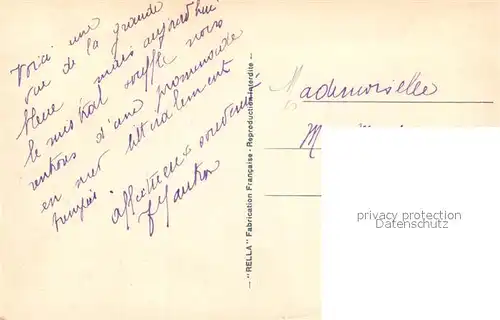 Voici une
vue de la grande
bleue, mais aujourd'hui
le mistral souffle nous
rentrons d'une promenade
en mer littéralement
trempés.
affectueux souvenir
"RELLA" Fabrication Française - Reproduction Interdite
Mademoiselle
M
privacy protection
Sammler.com